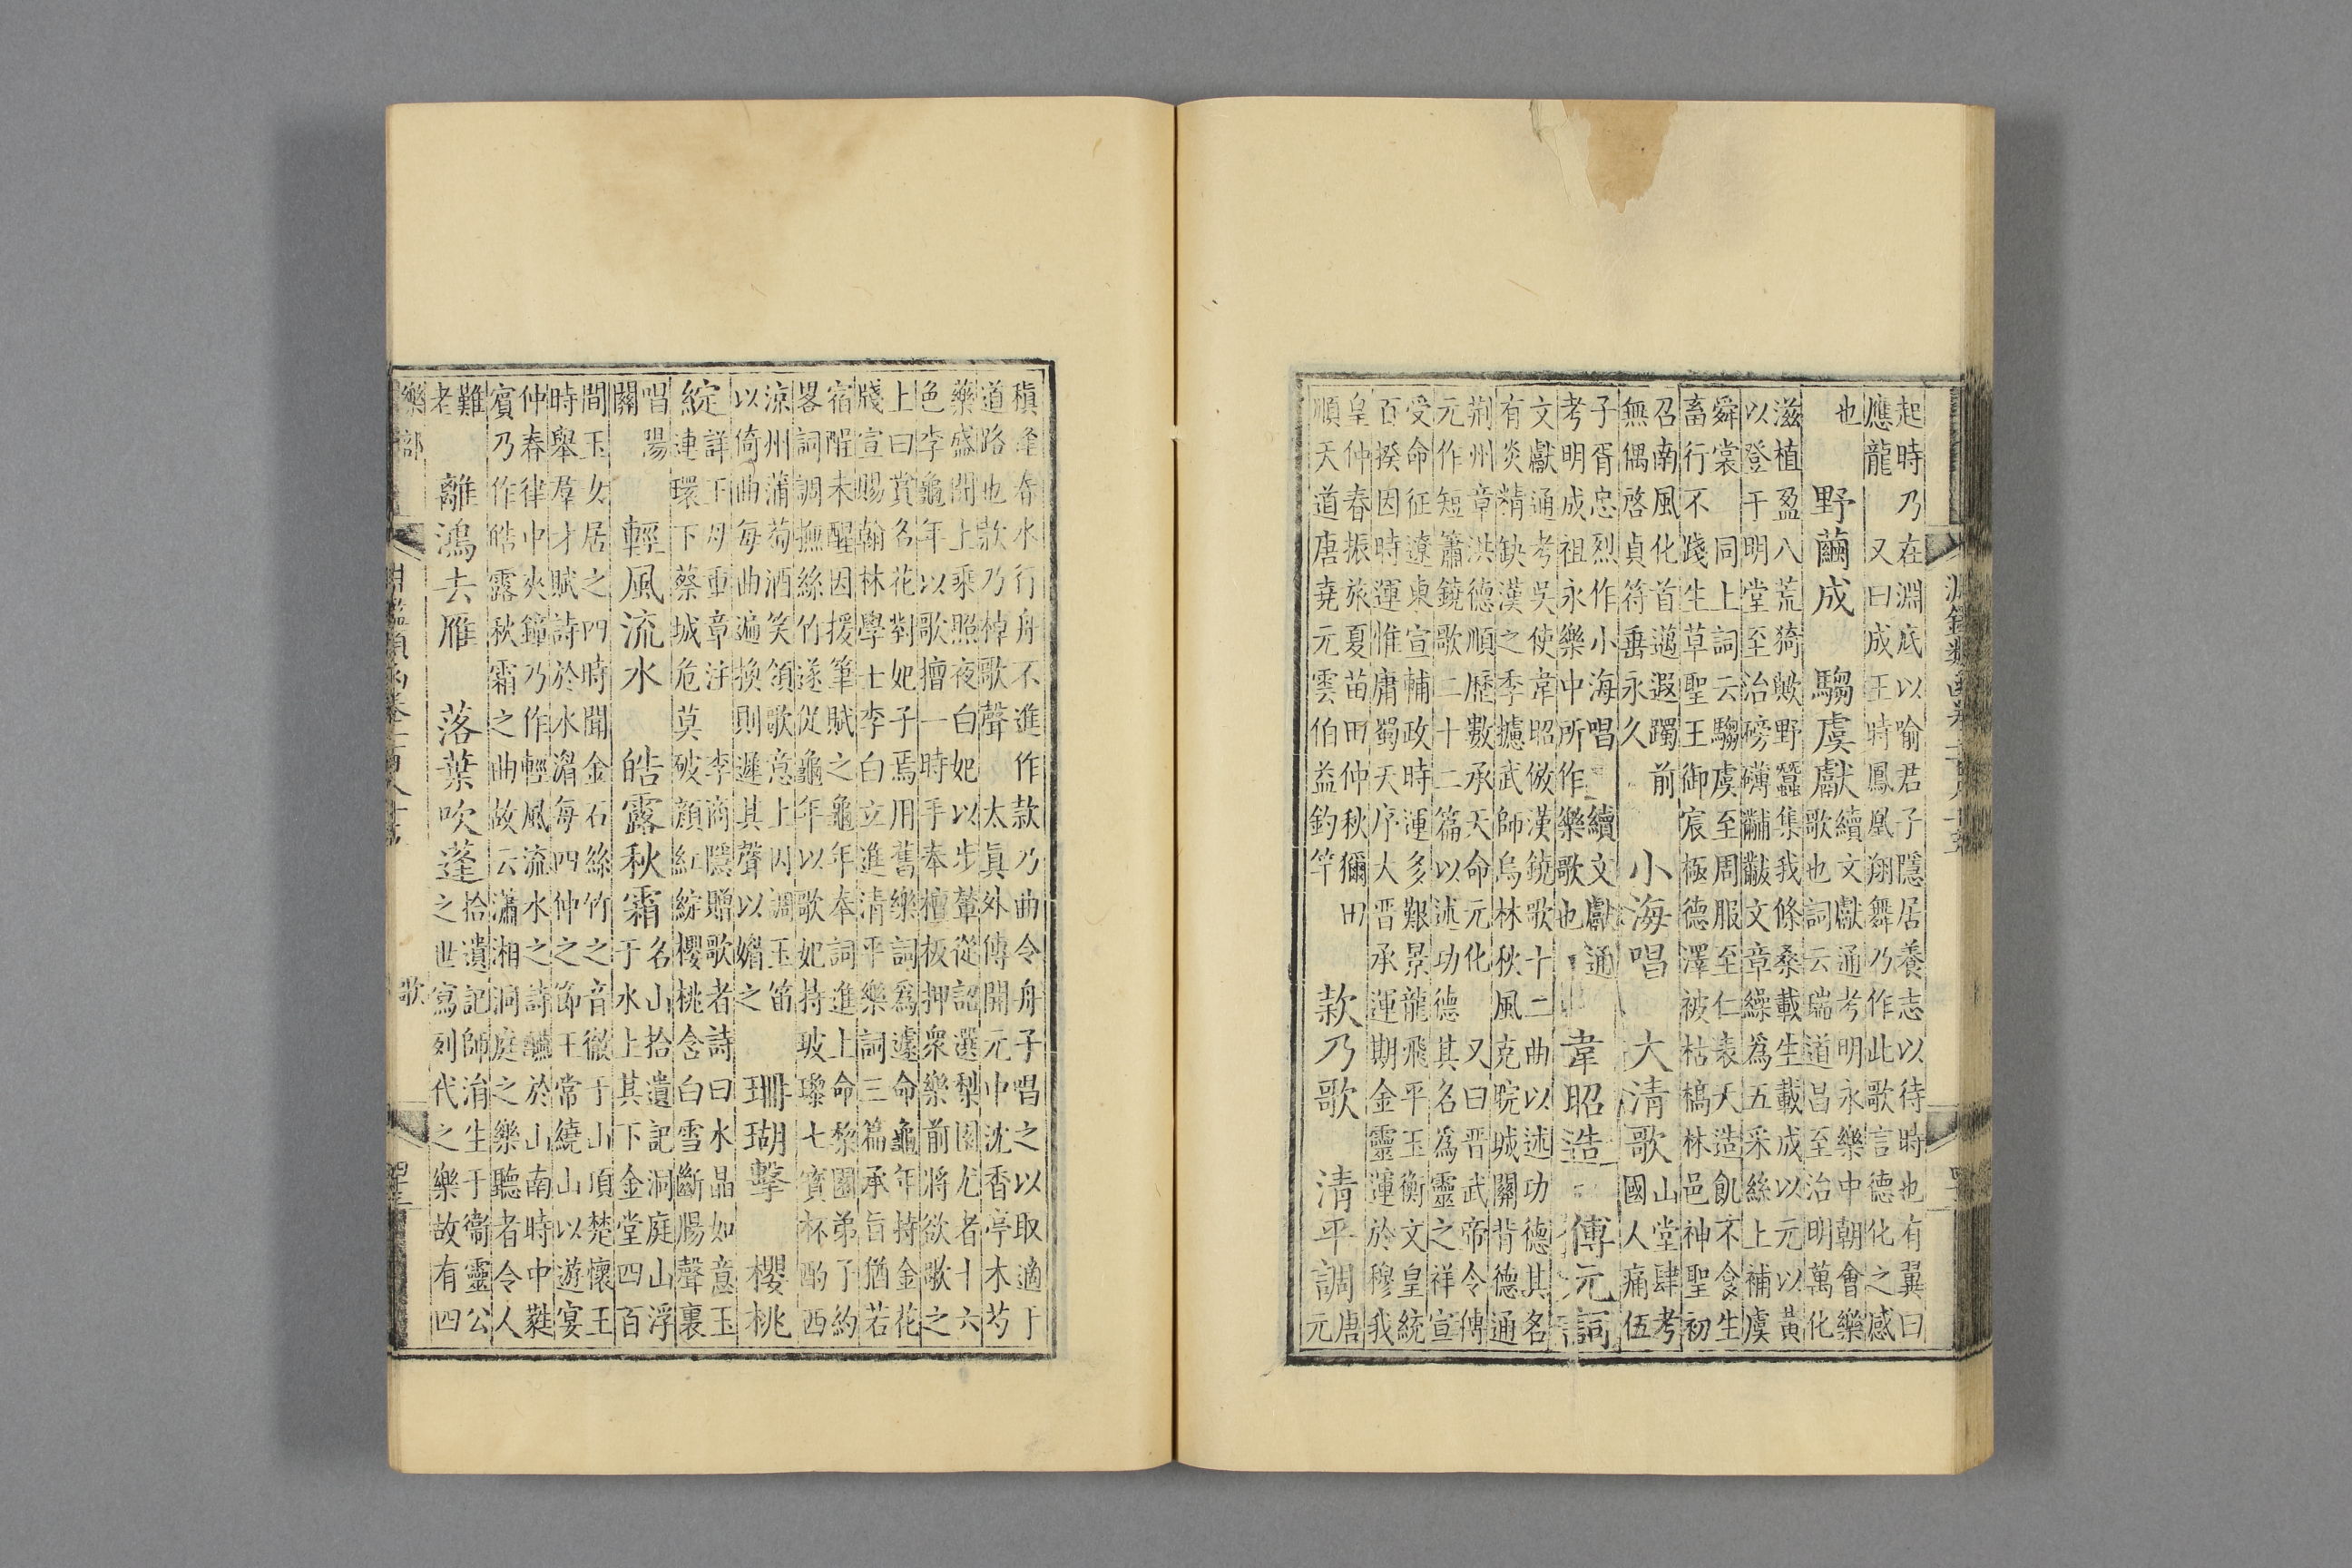 淵鑑類函卷一百八十五
起時乃在淵底以喻君子隱居養志以待時也有翼曰
應龍 又曰成王時鳳凰翔舞乃作此歌言德化之感
也 野繭成 騶虞獻 續文獻通考明永樂中朝會樂
歌也詞云瑞道昌至治明萬化
滋植盈八荒猗歟野蠶集我條桑載生載成以元以黃
以登于明堂至治磅礴黼黻文章繰為五采絲上補虞
舜裳 同上詞云騶虞至周服至仁表天造飢不食生
畜行不踐生草聖王御宸極德澤被枯槁林邑神聖初
召南風化首邁遐躅前
無偶啓貞符垂永久 小海唱 大清歌 山堂肆考
國人痛伍
子胥忠烈作小海唱 續文獻通
考明成祖永樂中所作樂歌也 韋昭造 傅元詞
文獻通考吳使韋昭倣漢鐃歌十二曲以述功德其名
有炎精缺漢之季攄武師烏林秋風克晥城關背德通
荊州章洪德順歷數承天命元化 又曰晉武帝令傅
元作短簫鐃歌二十二篇以述功德其名為靈之祥宣
受命征遼東宣輔政時運多艱景龍飛平玉衡文皇統
百揆因時運惟庸蜀天序大晉承運期金靈運於穆我
皇仲春振旅夏苗田仲秋獮田
順天道唐堯元雲伯益釣竿 款乃歌 清平調 唐
元
稹逢春水行舟不進作款乃曲令舟子唱之以取適于
道路也款乃棹歌聲 太真外傳開元中沈香亭木芍
藥盛開上乘照夜白妃以步輦從詔選梨園尤者十六
色李龜年以歌擅一時手奉檀板押衆樂前將欲歌之
上曰賞名花對妃子焉用舊樂詞為遽命龜年持金花
牋宣賜翰林學士李白立進清平樂詞三篇承旨猶若
宿酲未醒因援筆賦之龜年奉詞進上命棃園弟子約
畧詞調撫絲竹遂從龜年以歌妃持玻瓈七寳杯酌西
涼州蒲萄酒笑領歌意上因調玉笛
以倚曲每曲遍換則遲其聲以媚之 珊瑚擊 櫻桃
綻 詳下毋重章注 李商隱贈歌者詩曰水晶如意玉
連環下蔡城危莫破顔紅綻櫻桃含白雪斷腸聲裏
唱陽
關 輕風流水 皓露秋霜 名山拾遺記洞庭山浮
于水上其下金堂四百
間玉女居之四時聞金石絲竹之音徹于山頂楚懷王
時舉羣才賦詩於水湄每四仲之節王常繞山以遊宴
仲春律中夾鐘乃作輕風流水之詩讌於山南時中蕤
賓乃作皓露秋霜之曲故云瀟相洞庭之樂聽者令人
難
老 離鴻去雁 落葉吹蓬 拾遺記師涓生于衞靈公
之世寫列代之樂故有四
樂部 淵鑑類函卷一百八十五 歌